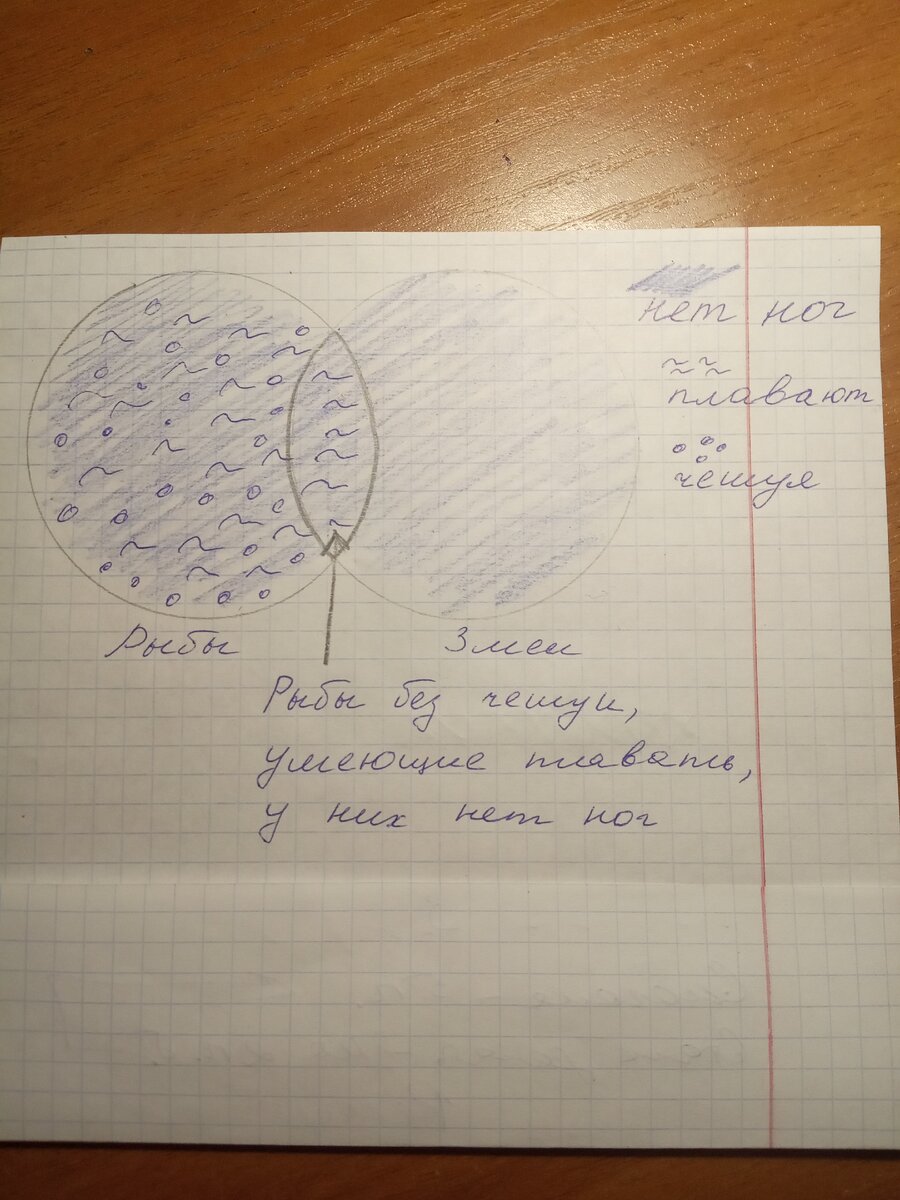 нет ног
плавают
чешуя
Рыбы
Змеи
Рыбы без чешуи,
умеющие плавать,
у них нет ног